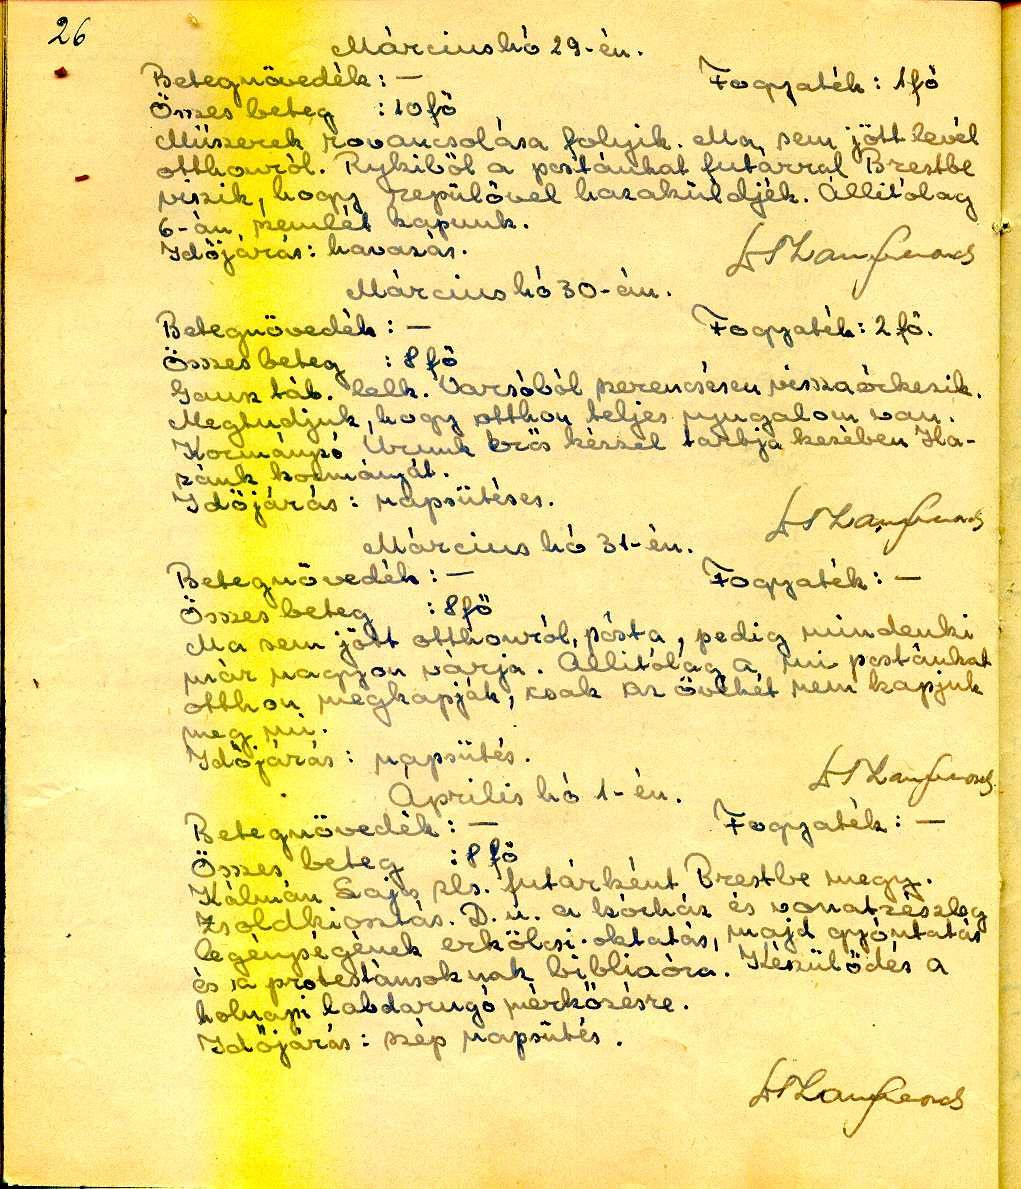 26
Március hó 29-én.
Betegnövedék: — Fogyaték: 1 fő
Összes beteg : 10 fő
Műszerek rovancsolása folyik. Ma sem jött levél
otthonról. Rykiből a postánkat futárral Brestbe
viszik, hogy repülővel hazaküldjék. Állítólag
6-án szemlét kapunk.
Időjárás: havazás.
Március hó 30-án.
Betegnövedék: — Fogyaték: 2 fő.
Összes beteg : 8 fő
Gausz táb. lelk. Varsóból szerencsésen visszaérkezik.
Megtudjuk, hogy otthon teljes nyugalom van.
Kormányzó Urunk erős kézzel tartja kezében Ha-
zánk kormányát.
Időjárás: napsütéses.
Március hó 31-én.
Betegnövedék: — Fogyaték: —
Összes beteg : 8 fő
Ma sem jött otthonról posta, pedig mindenki
már nagyon várja. Állítólag a mi postánkat
otthon megkapják, csak az övékét nem kapjuk
meg mi.
Időjárás: napsütés.
Április hó 1-én.
Betegnövedék: — Fogyaték: —
Összes beteg : 8 fő
Kálmán Lajos zls. futárként Brestbe megy.
Zsoldkiosztás. D. u. a kórház és vonatrészleg
legénységének erkölcsi oktatás, majd gyóntatás
és a protestánsoknak bibliaóra. Készülődés a
holnapi labdarugó mérkőzésre.
Időjárás: szép napsütés.